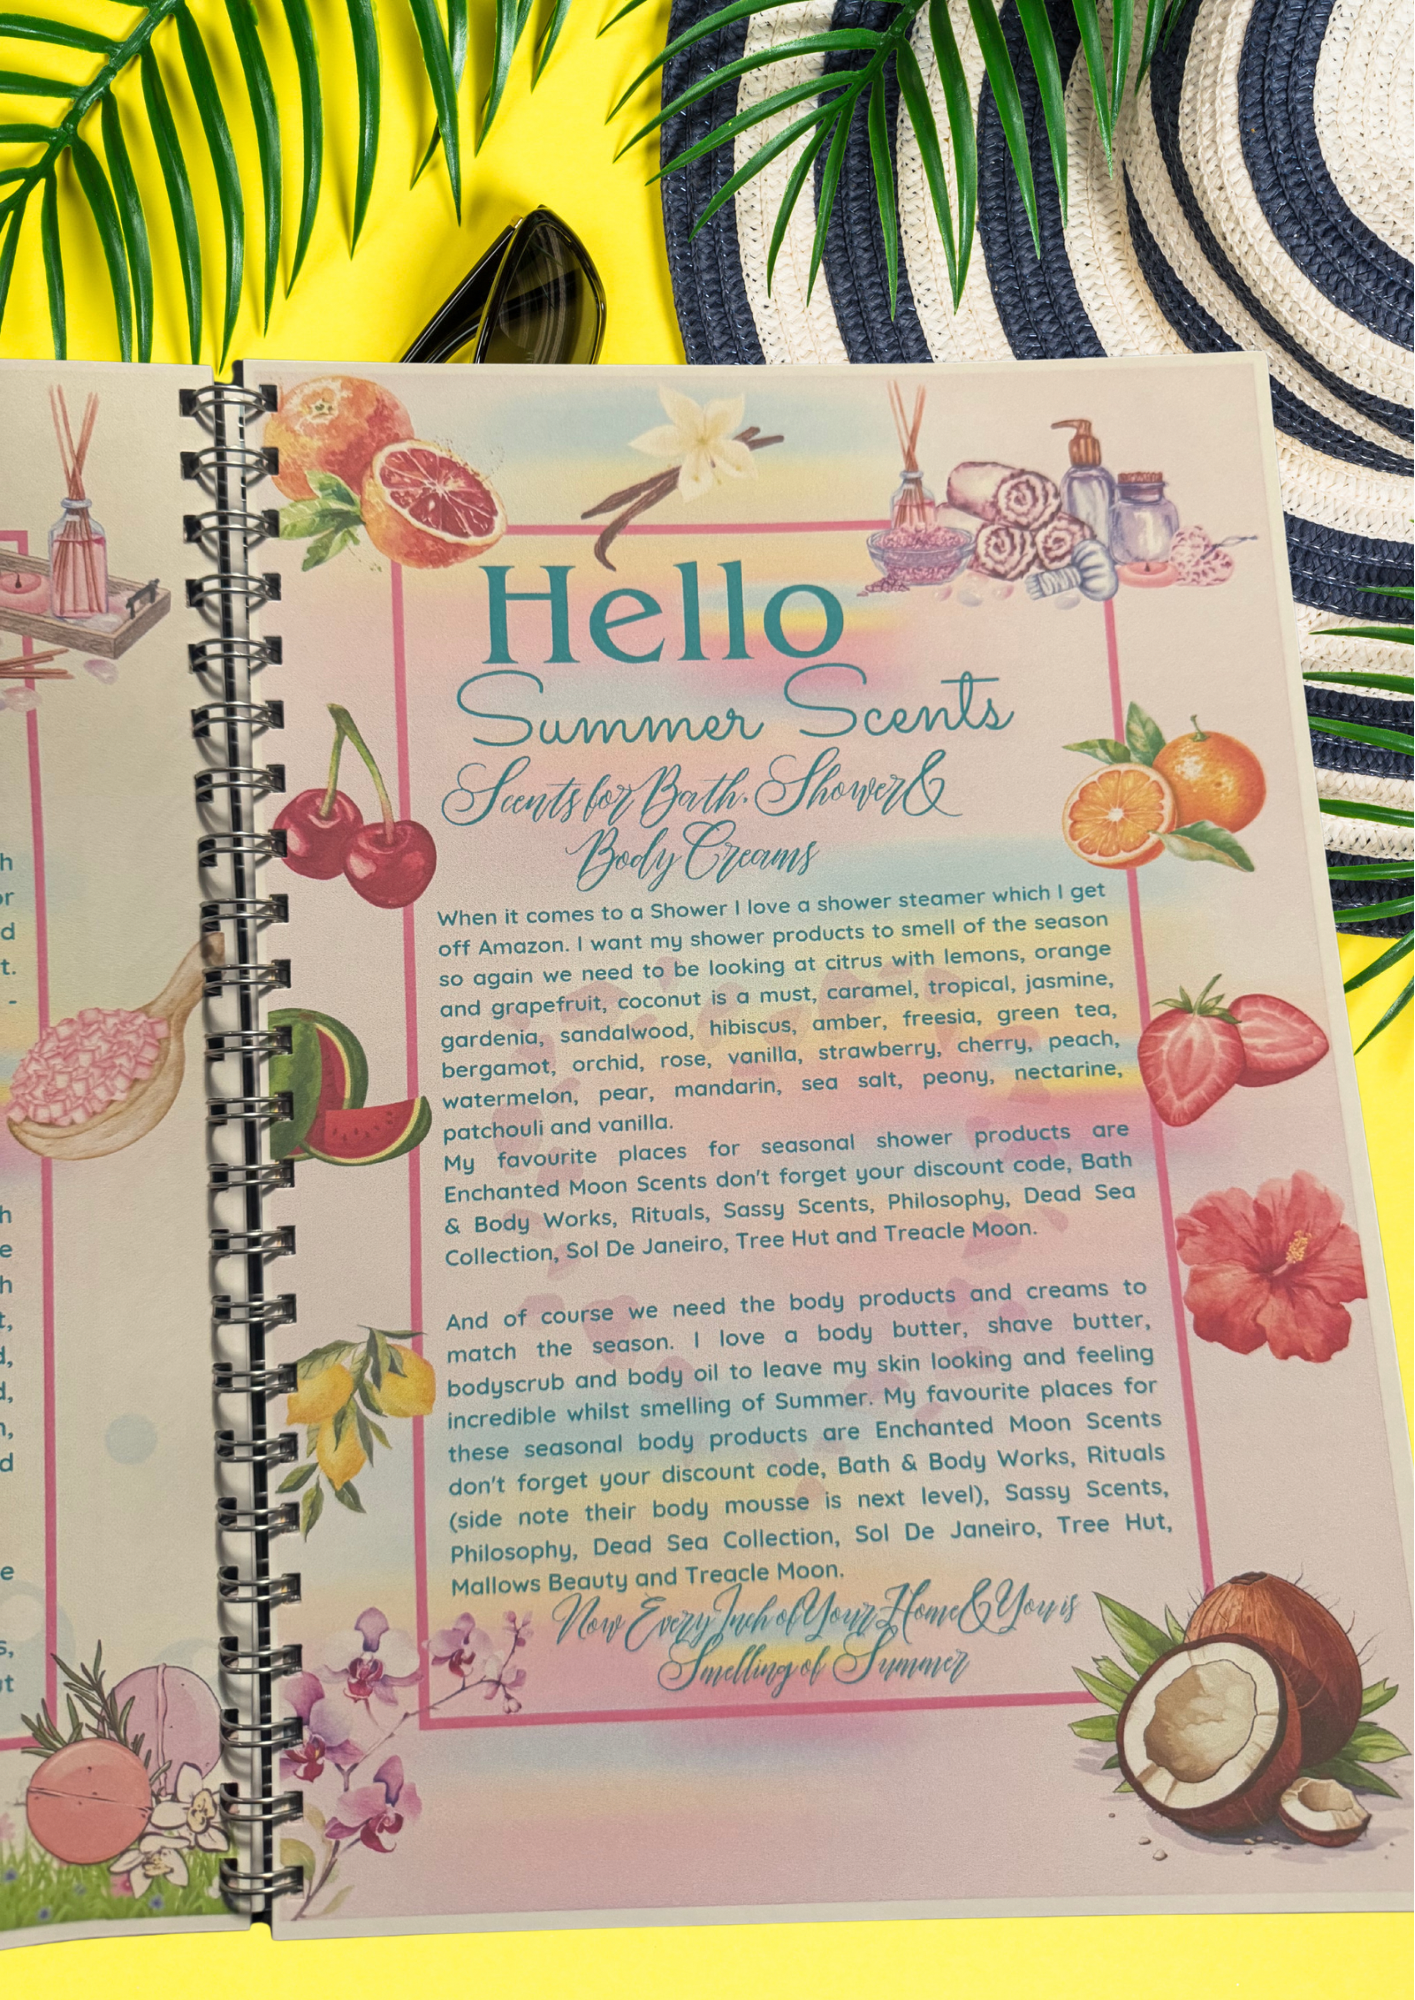 h
or
d
t.
-
h
e
h
t,
d,
d,
n,
d
e
s,
ut
Hello
Summer Scents
Scents for Bath, Shower &
Body Creams
When it comes to a Shower I love a shower steamer which I get
off Amazon. I want my shower products to smell of the season
so again we need to be looking at citrus with lemons, orange
and grapefruit, coconut is a must, caramel, tropical, jasmine,
gardenia, sandalwood, hibiscus, amber, freesia, green tea,
bergamot, orchid, rose, vanilla, strawberry, cherry, peach,
watermelon, pear, mandarin, sea salt, peony, nectarine,
patchouli and vanilla.
My favourite places for seasonal shower products are
Enchanted Moon Scents don't forget your discount code, Bath
& Body Works, Rituals, Sassy Scents, Philosophy, Dead Sea
Collection, Sol De Janeiro, Tree Hut and Treacle Moon.
And of course we need the body products and creams to
match the season. I love a body butter, shave butter,
bodyscrub and body oil to leave my skin looking and feeling
incredible whilst smelling of Summer. My favourite places for
these seasonal body products are Enchanted Moon Scents
don't forget your discount code, Bath & Body Works, Rituals
(side note their body mousse is next level), Sassy Scents,
Philosophy, Dead Sea Collection, Sol De Janeiro, Tree Hut,
Mallows Beauty and Treacle Moon.
Now Every Inch of Your Home & You is
Smelling of Summer